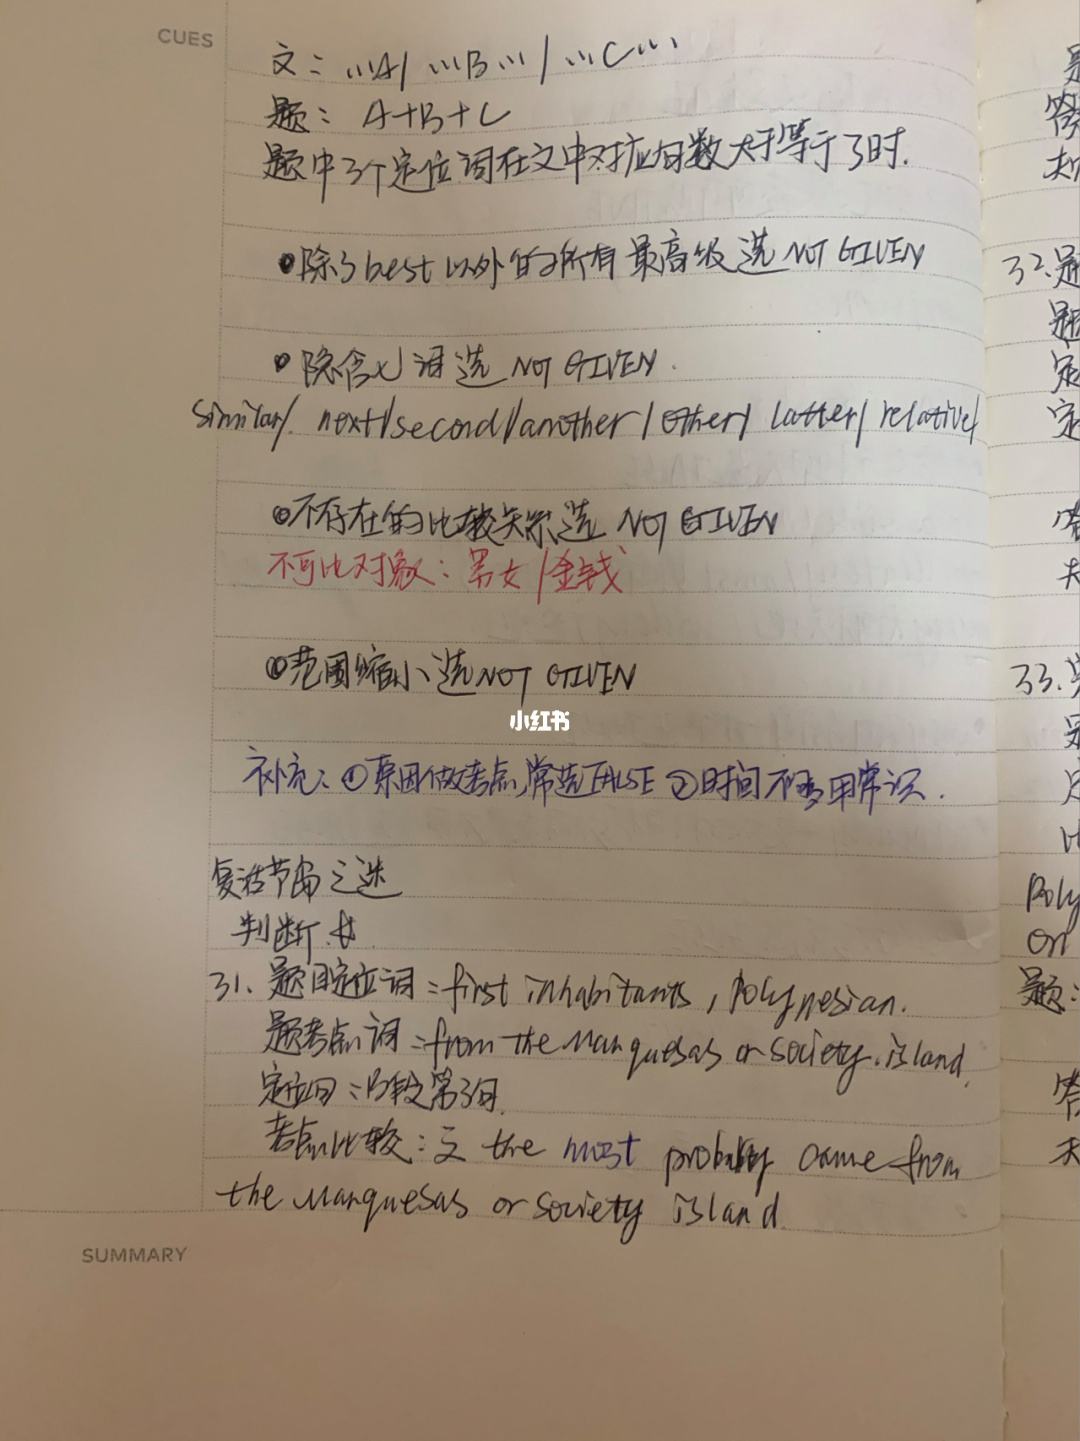 CUES
文：…A/ …B…/ …C…
题：A+B+C
题中3个定位词在文中对应句数大于等于3时.
除了best以外的所有最高级选NOT GIVEN
隐含义词选NOT GIVEN.
similar/ next/second/another/other/ latter/relative/
不存在的比较关系选 NOT GIVEN
不可比对象：男女/金钱
范围缩小选NOT GIVEN
小红书
补充：①原因做考点,常选FALSE ②时间不要用常识.
复活节岛之迷
判断
31. 题目定位词：first inhabitants, Polynesian.
题考点词：from the Marquesas or society island.
定位句：B段第3句.
考点比较：文 the most probably came from
the Marquesas or society island
SUMMARY
题
答
32.题
题
定
定
答
33.
Poly
on
题：
答